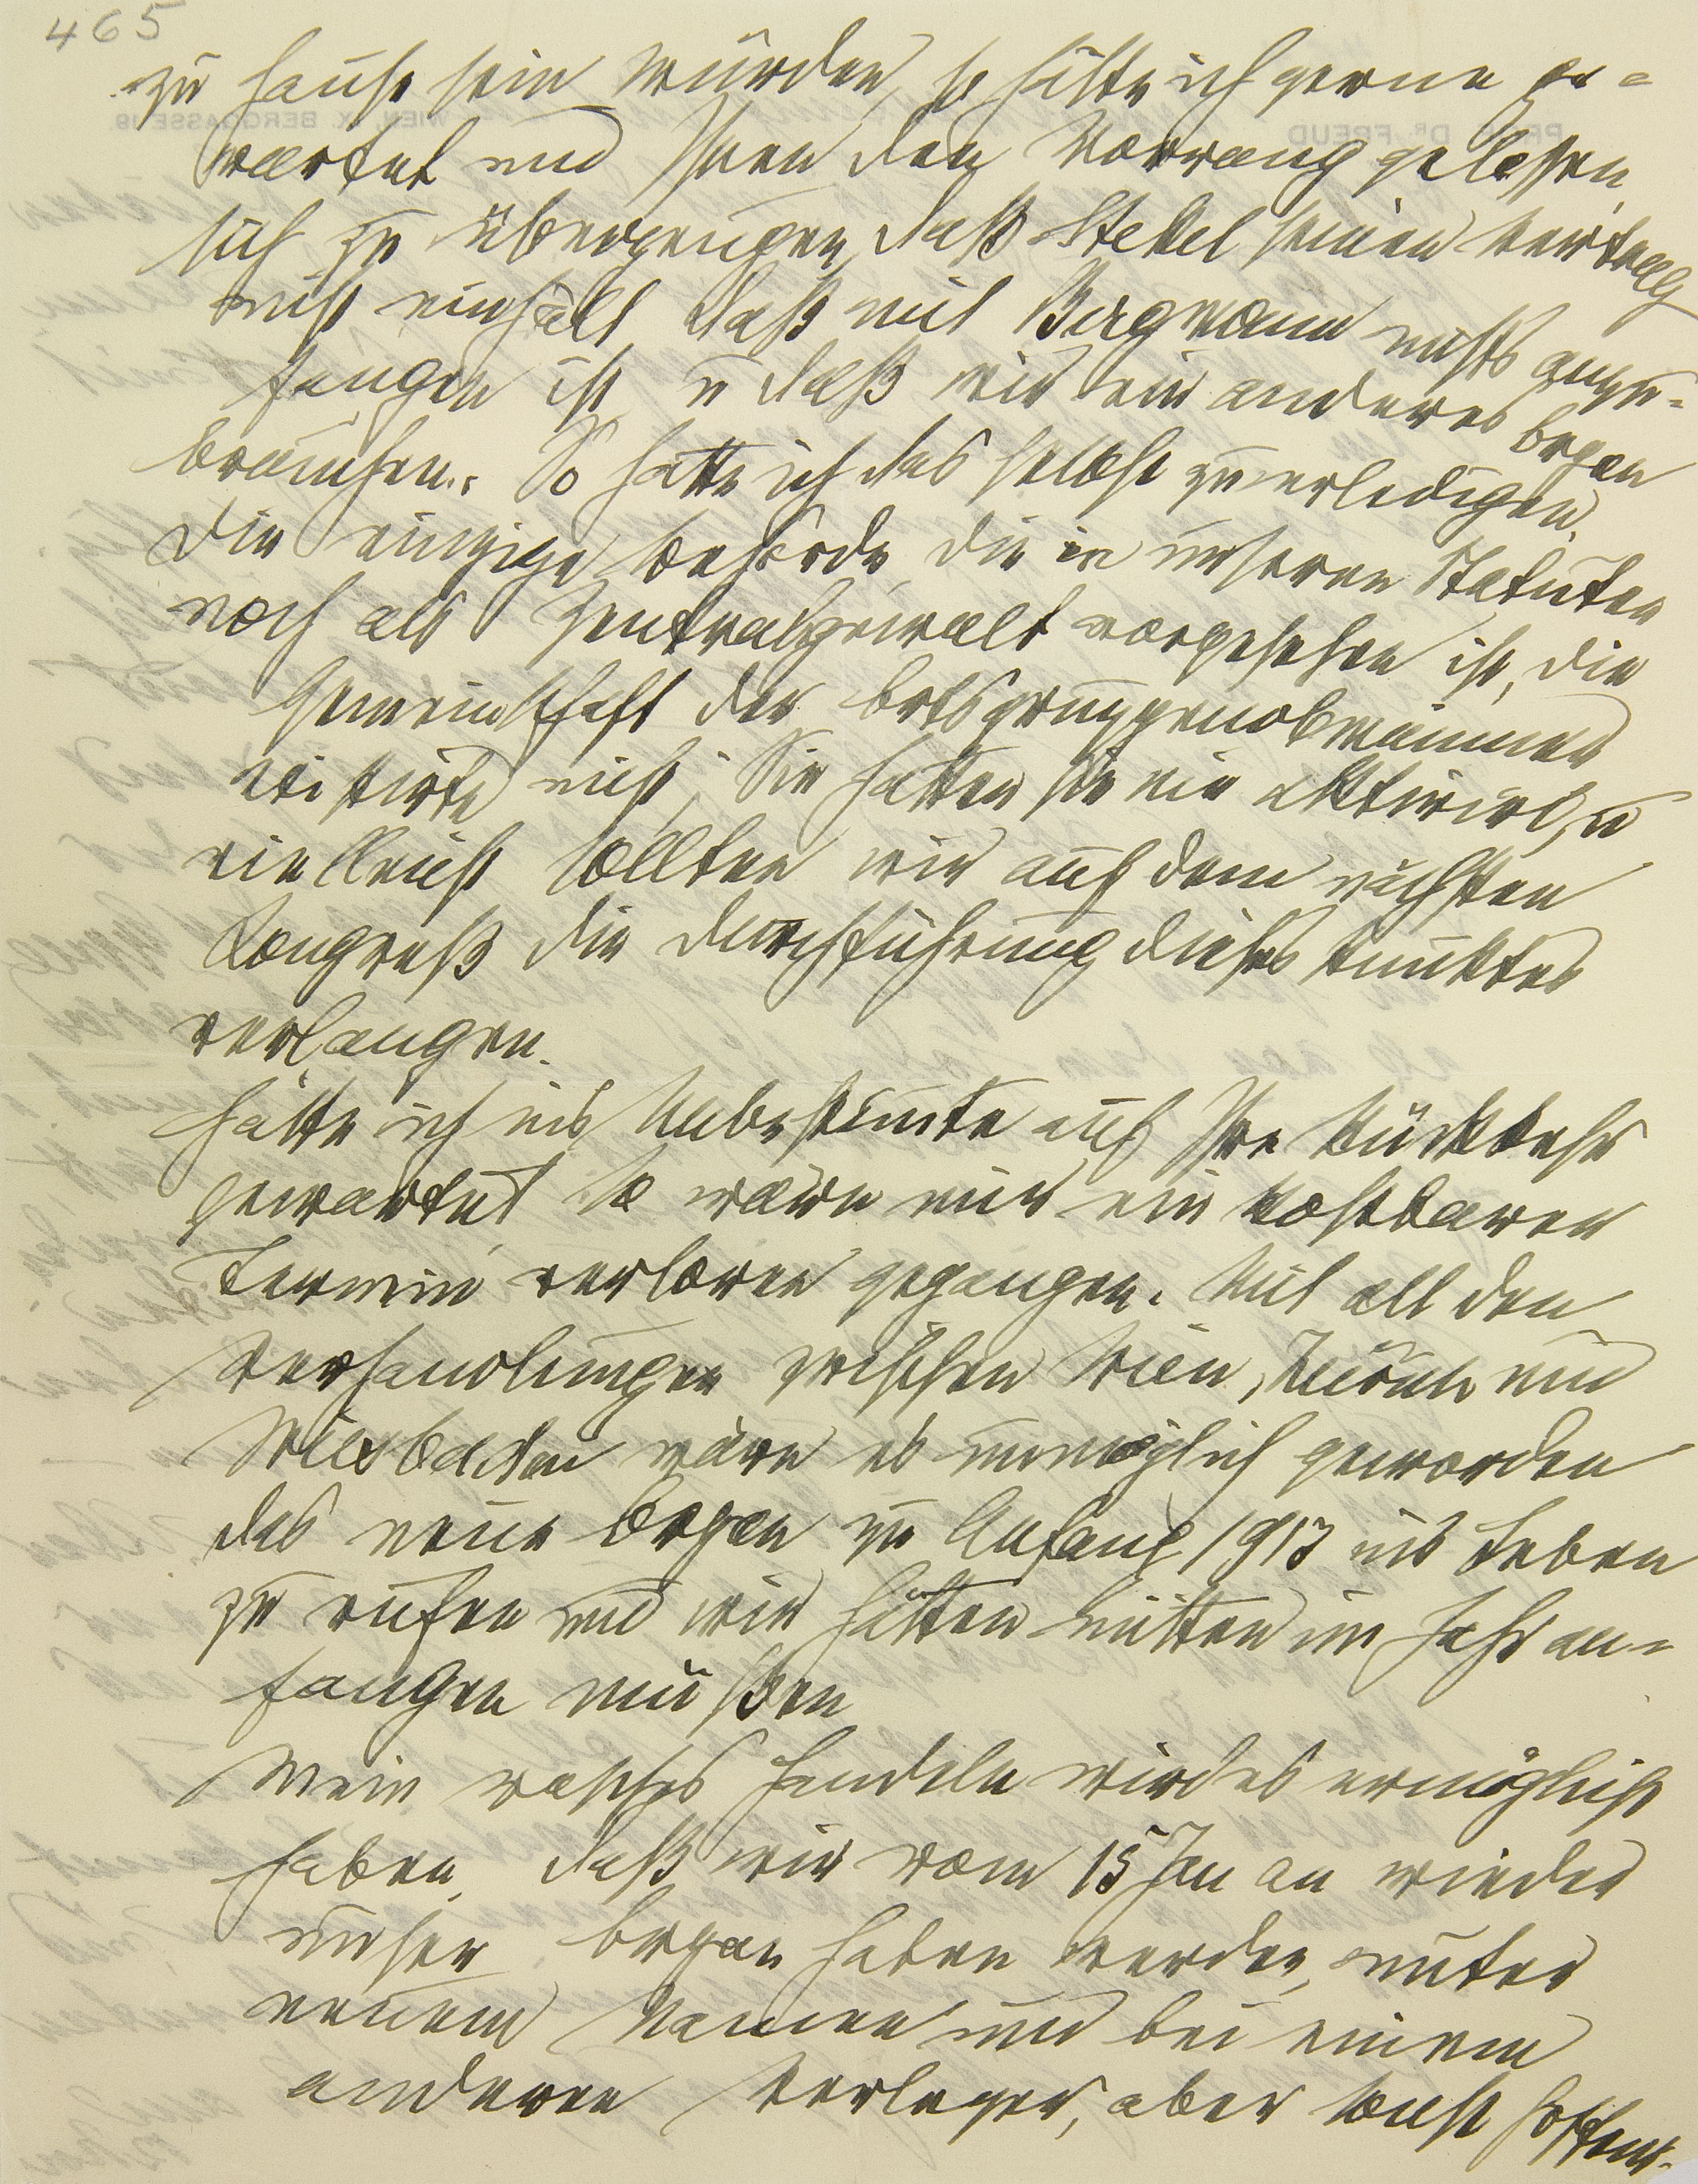 465
zu Hause sein würden, so hätte ich gerne ge=
wartet und Ihnen den Vorrang gelaßen,
sich zu überzeugen, daß Stekel seinen Vertrag
nicht einhält, daß mit Bergmann nichts anzu=
fangen ist u daß wir ein anderes Organ
brauchen. So hatte ich das selbst zu erledigen.
Die einzige Behörde, die in unseren Statuten
noch als Zentralgewalt vorgesehen ist, die
Gemeinschaft der Ortsgruppenobmänner
existirte nicht; Sie hatten sie nie aktivirt, u
vielleicht sollten wir auf dem nächsten
Kongreß die Durchführung dieses Punktes
verlangen.
Hätte ich ins Unbestimmte auf Ihre Rückkehr
gewartet, so wäre mir ein kostbarer
Termin verloren gegangen. Mit all den
Verhandlungen zwischen Wien, Zürich und
Wiesbaden wäre es unmöglich geworden
das neue Organ zu Anfang 1913 ins Leben
zu rufen und wir hätten mitten im Jahr an=
fangen müßen
Mein rasches Handeln wird es ermöglicht
haben, daß wir vom 15 Jan an wieder
unser Organ haben werden, unter
neuem Namen und bei einem
anderen Verleger, aber sonst hoffent-
PROF. DR. FREUD
WIEN, IX. BERGGASSE 19.